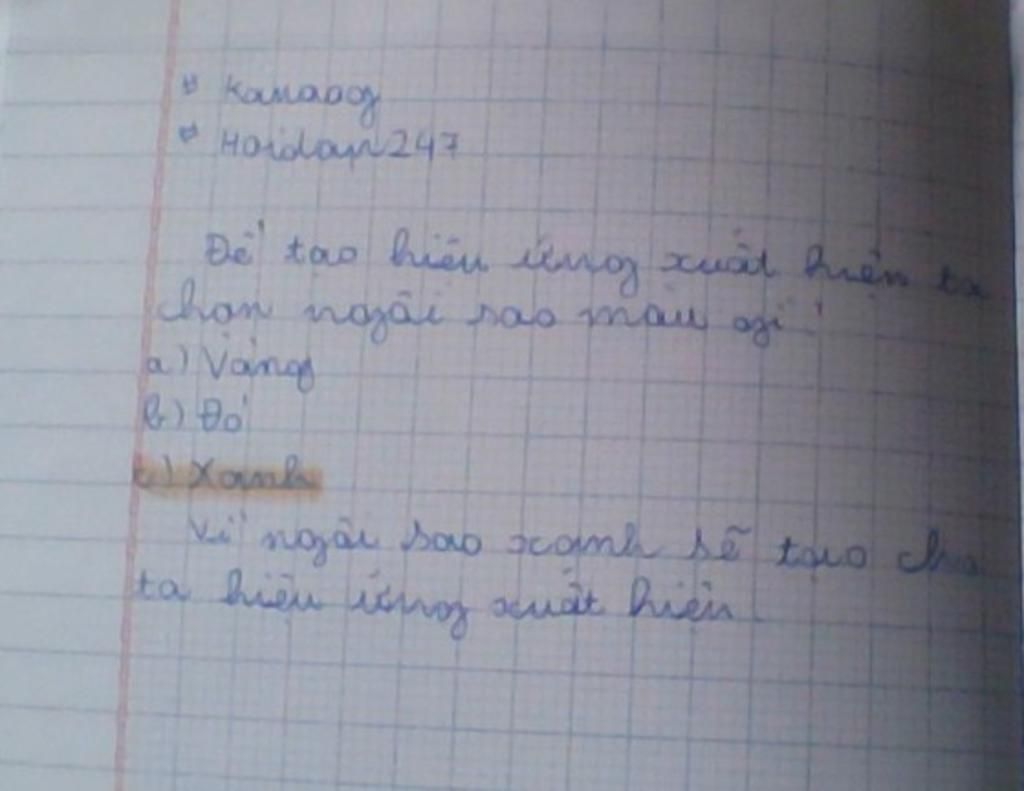 * Kanaog
* Hoidap247
Để tạo hiệu ứng xuất hiện ta
chọn ngôi sao màu gì?
a) Vàng
b) Đỏ
c) Xanh
Vì ngôi sao xanh sẽ tạo cho
ta hiệu ứng xuất hiện.